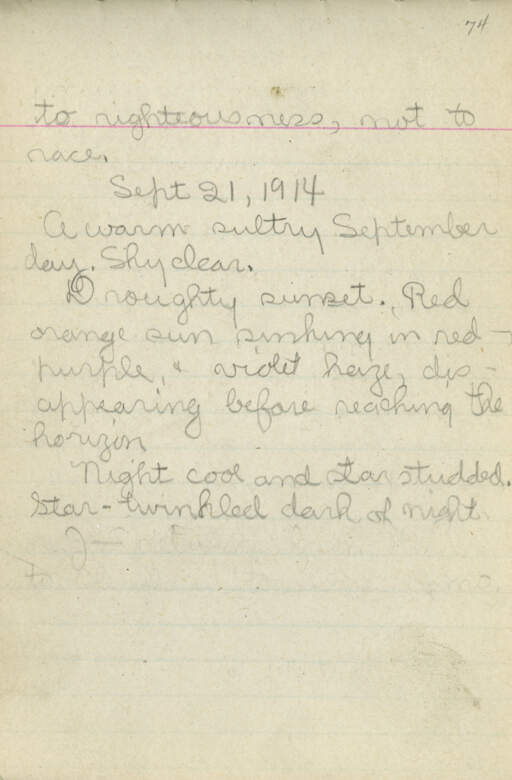 74
to righteousness, not to
race.
Sept 21, 1914
A warm sultry September
day. Sky clear.
Droughty sunset. Red
orange sun sinking in red-
purple, & violet haze, dis-
appearing before reaching the
horizon
Night cool and star studded.
Star-twinkled dark of night.
to